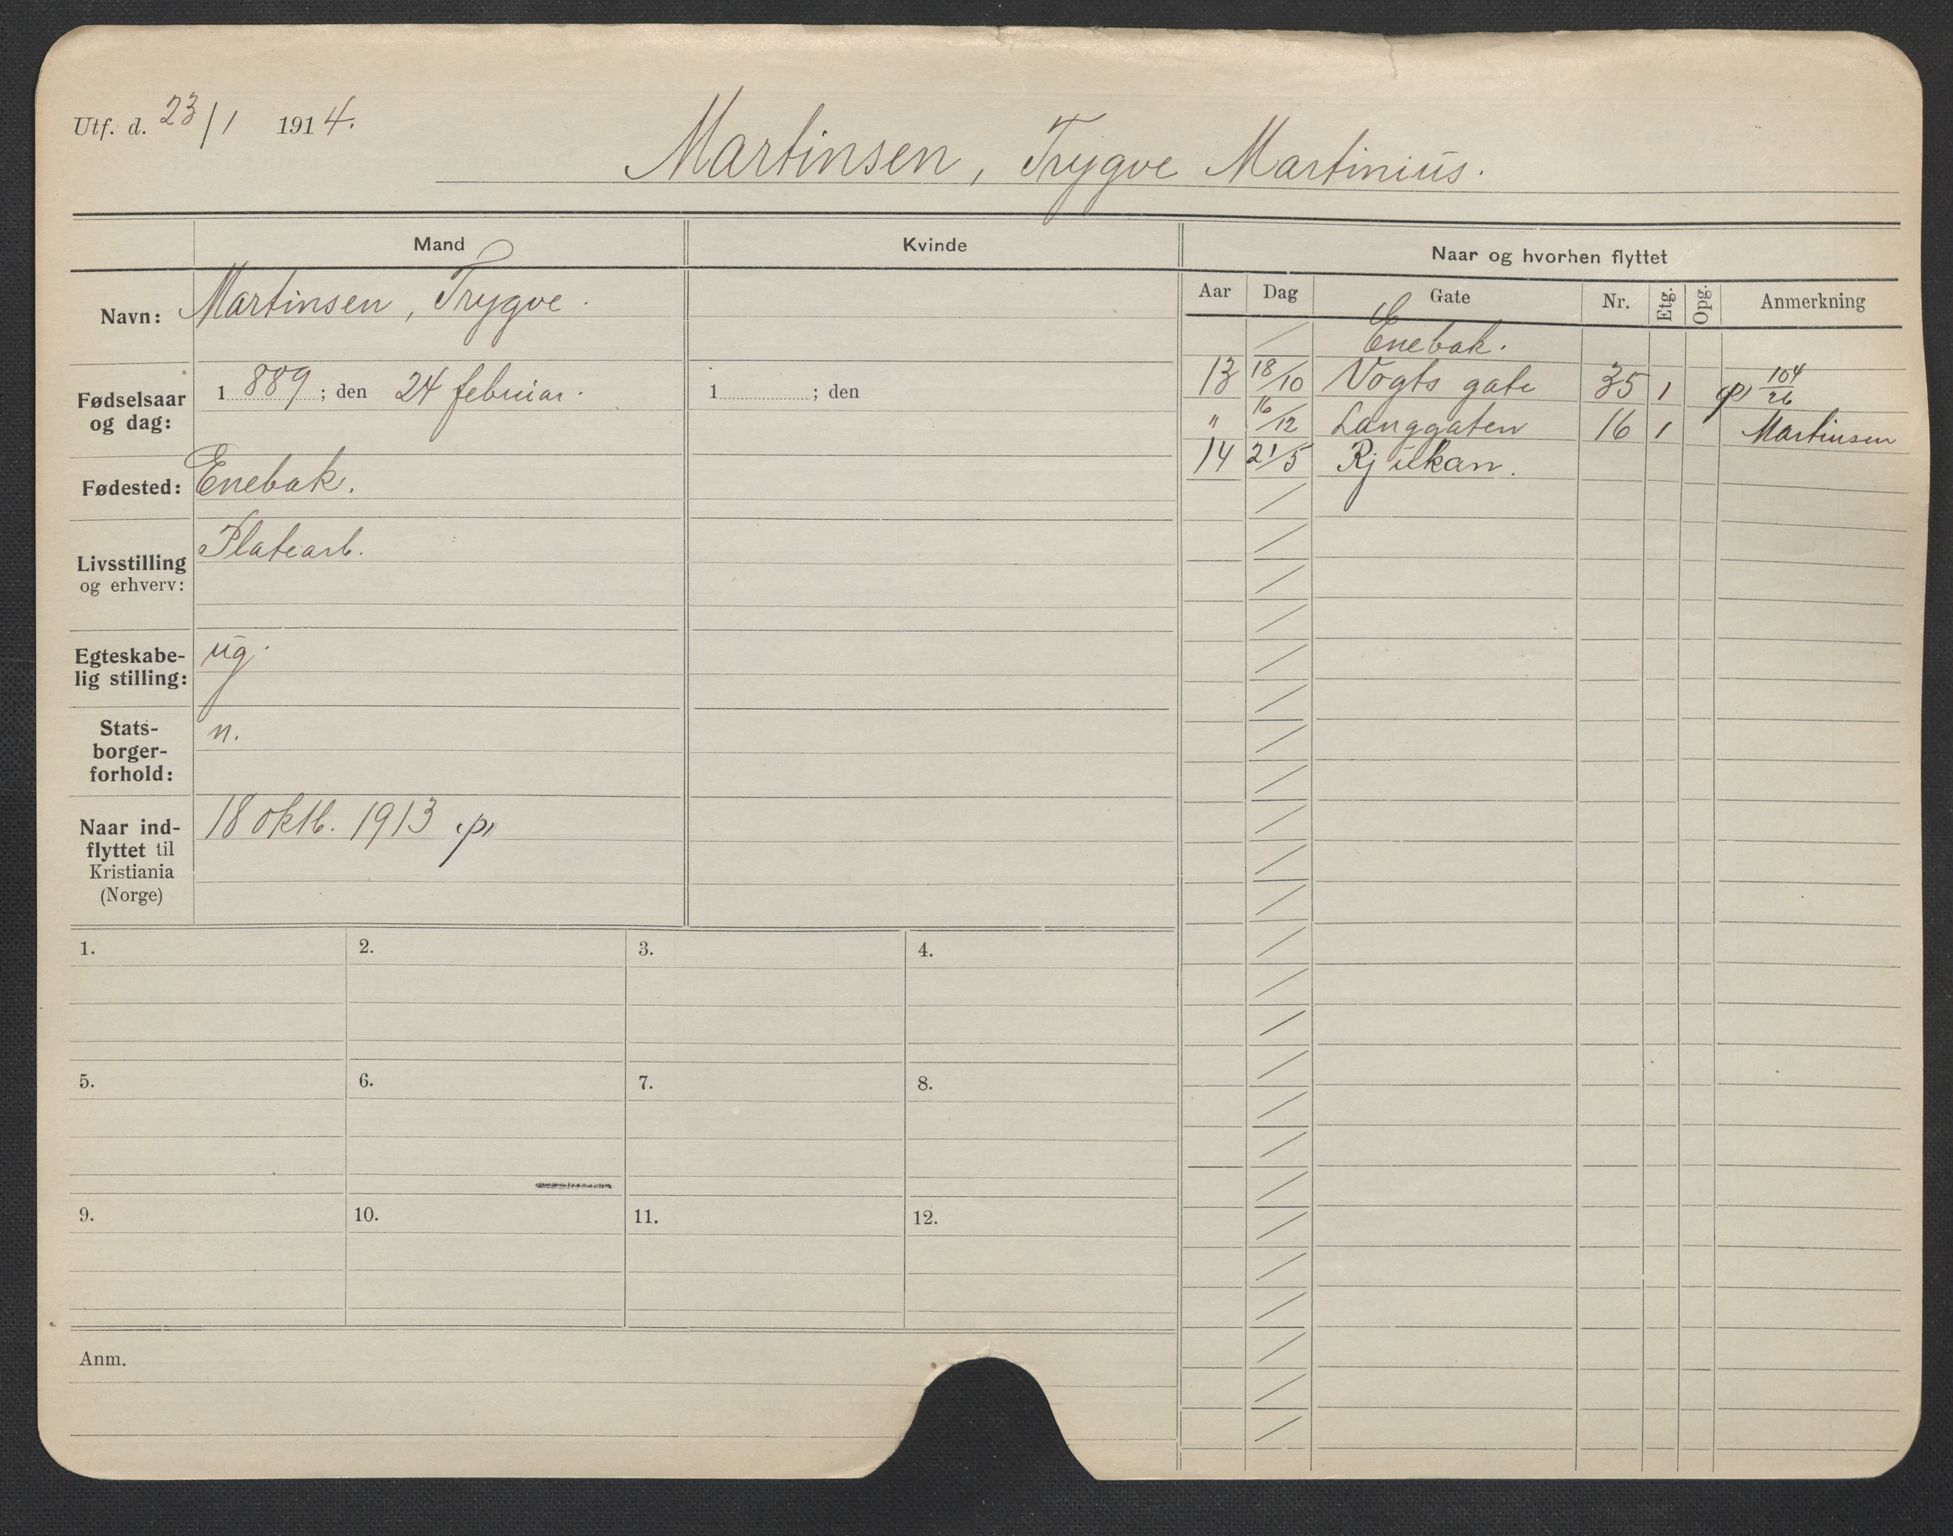 Utf. d. 23/1 1914.
Martinsen, Trygve Martinius.
Mand
Kvinde
Naar og hvorhen flyttet
Aar Dag Gate Nr. Etg. Opg. Anmerkning
Navn: Martinsen, Trygve.
Fødselsaar og dag: 1889; den 24 februar.
1 ; den
Fødested: Enebak.
Livsstilling og erhverv: Platearb.
Egteskabe-
lig stilling: ug.
Stats-
borger-
forhold: n.
Naar ind-
flyttet til
Kristiania
(Norge) 18 oktb. 1913 p
Enebak.
13 18/10 Vogts gate 35 1 p 104/26
" 16/12 Langgaten 16 1 Martinsen
14 21/5 Rjukan.
1. 2. 3. 4.
5. 6. 7. 8.
9. 10. 11. 12.
Anm.